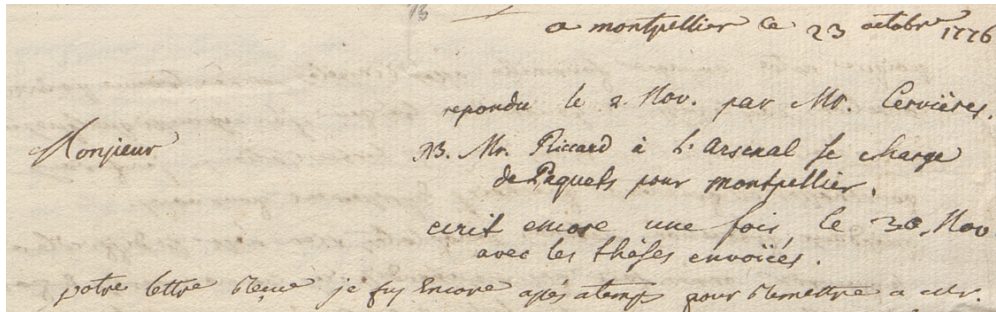 a montpellier ce 23 octobre 1776
repondu le 2. Nov. par Mr. Cervières.
Monsieur
NB. Mr. Riccard à l'Arsenal se charge
de Paquets pour montpellier.
ecrit encore une fois le 30. Nov
avec les thèses envoïées.
votre lettre reçue je fus Encore assés atemps pour remettre a Mr.